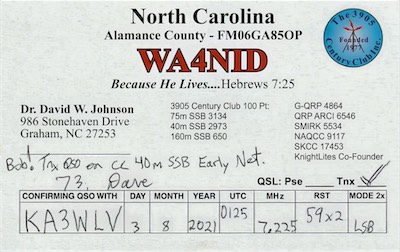 North Carolina
Alamance County - FM06GA85OP
WA4NID
Because He Lives....Hebrews 7:25
The 3905
Founded
1977
Century Club Inc.
Dr. David W. Johnson
986 Stonehaven Drive
Graham, NC 27253
3905 Century Club 100 Pt:
75m SSB 3134
40m SSB 2973
160m SSB 650
G-QRP 4864
QRP ARCI 6546
SMIRK 5534
NAQCC 9117
SKCC 17453
KnightLites Co-Founder
Bob! Tnx QSO on CC 40m SSB Early Net.
73, Dave
QSL: Pse Tnx ✓
CONFIRMING QSO WITH DAY MONTH YEAR UTC MHz RST MODE 2x
KA3WLV 3 8 2021 0125 7.225 59x2 LSB